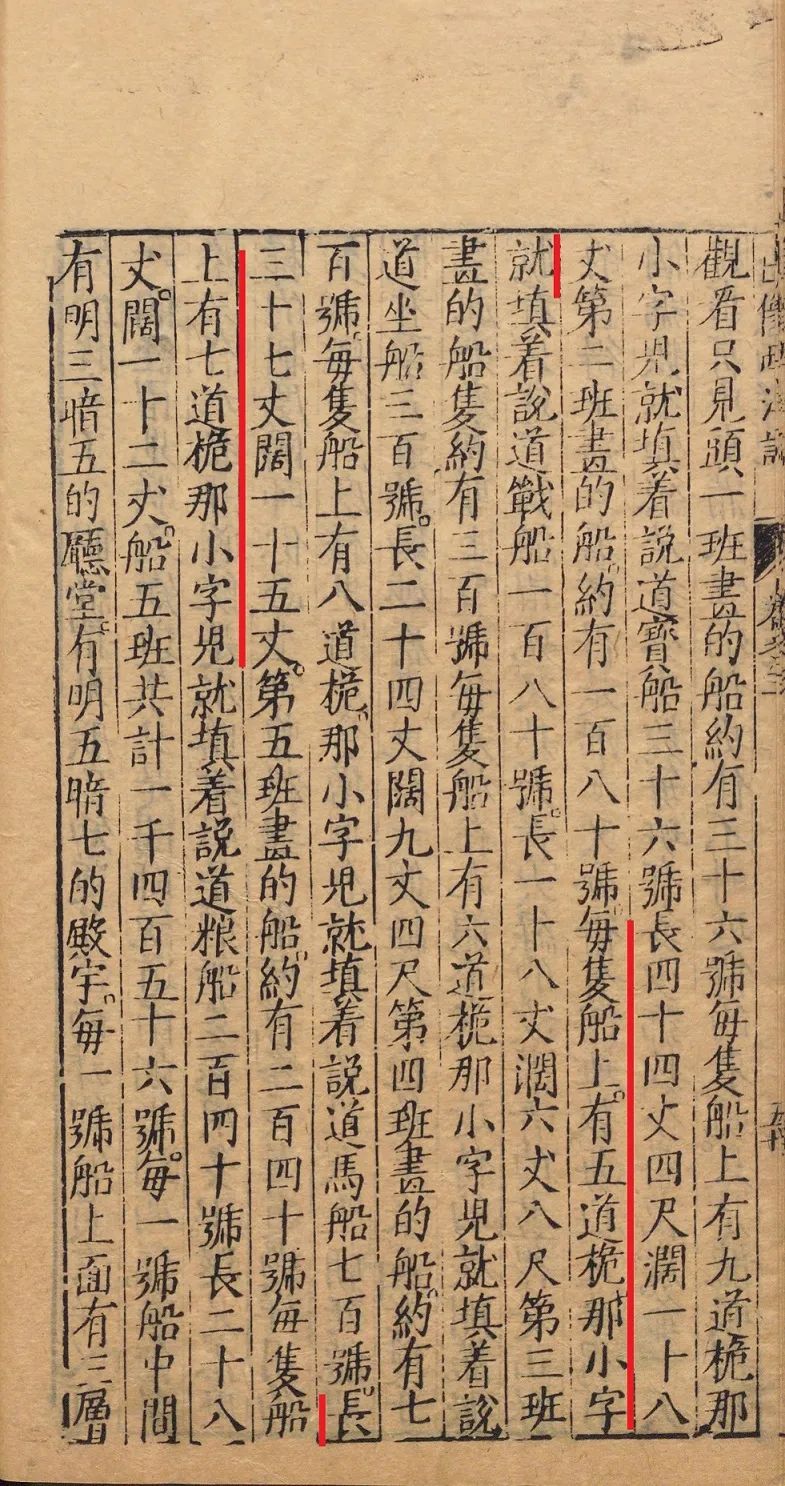 觀看只見頭一班畫的船約有三十六號每隻船上有九道桅那
小字兒就填着說道寶船三十六號長四十四丈四尺濶一十八
丈第二班畫的船。約有一百八十號。每隻船上。有五道桅那小字
就填着說道戰船一百八十號。長一十八丈濶六丈八尺第三班
畫的船隻約有三百號每隻船上有六道桅那小字兒就填着說
道坐船三百號。長二十四丈闊九丈四尺第四班畫的船。約有七
百號。每隻船上有八道桅。那小字兒就填着說道馬船七百號。長
三十七丈闊一十五丈。第五班畫的船。約有二百四十號每隻船
上有七道桅那小字兒就填着說道粮船二百四十號長二十八
丈。闊一十二丈。船五班共計一千四百五十六號。每一號船中間
有明三暗五的廳堂。有明五暗七的殿宇。每一號船上面有三層